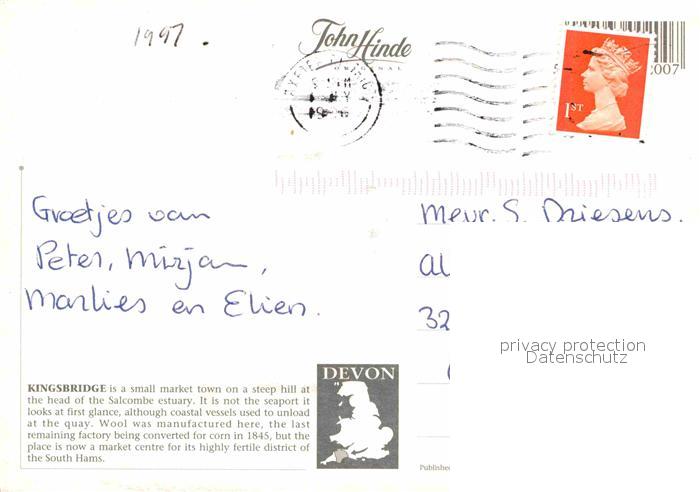 1997.
John Hinde
ORIGINAL
1ST
2007
Groetjes van
Peter, Mirjam,
Marlies en Elien.
Mevr. S. Driesens.
al
32
privacy protection
Datenschutz
KINGSBRIDGE is a small market town on a steep hill at
the head of the Salcombe estuary. It is not the seaport it
looks at first glance, although coastal vessels used to unload
at the quay. Wool was manufactured here, the last
remaining factory being converted for corn in 1845, but the
place is now a market centre for its highly fertile district of
the South Hams.
DEVON
Published